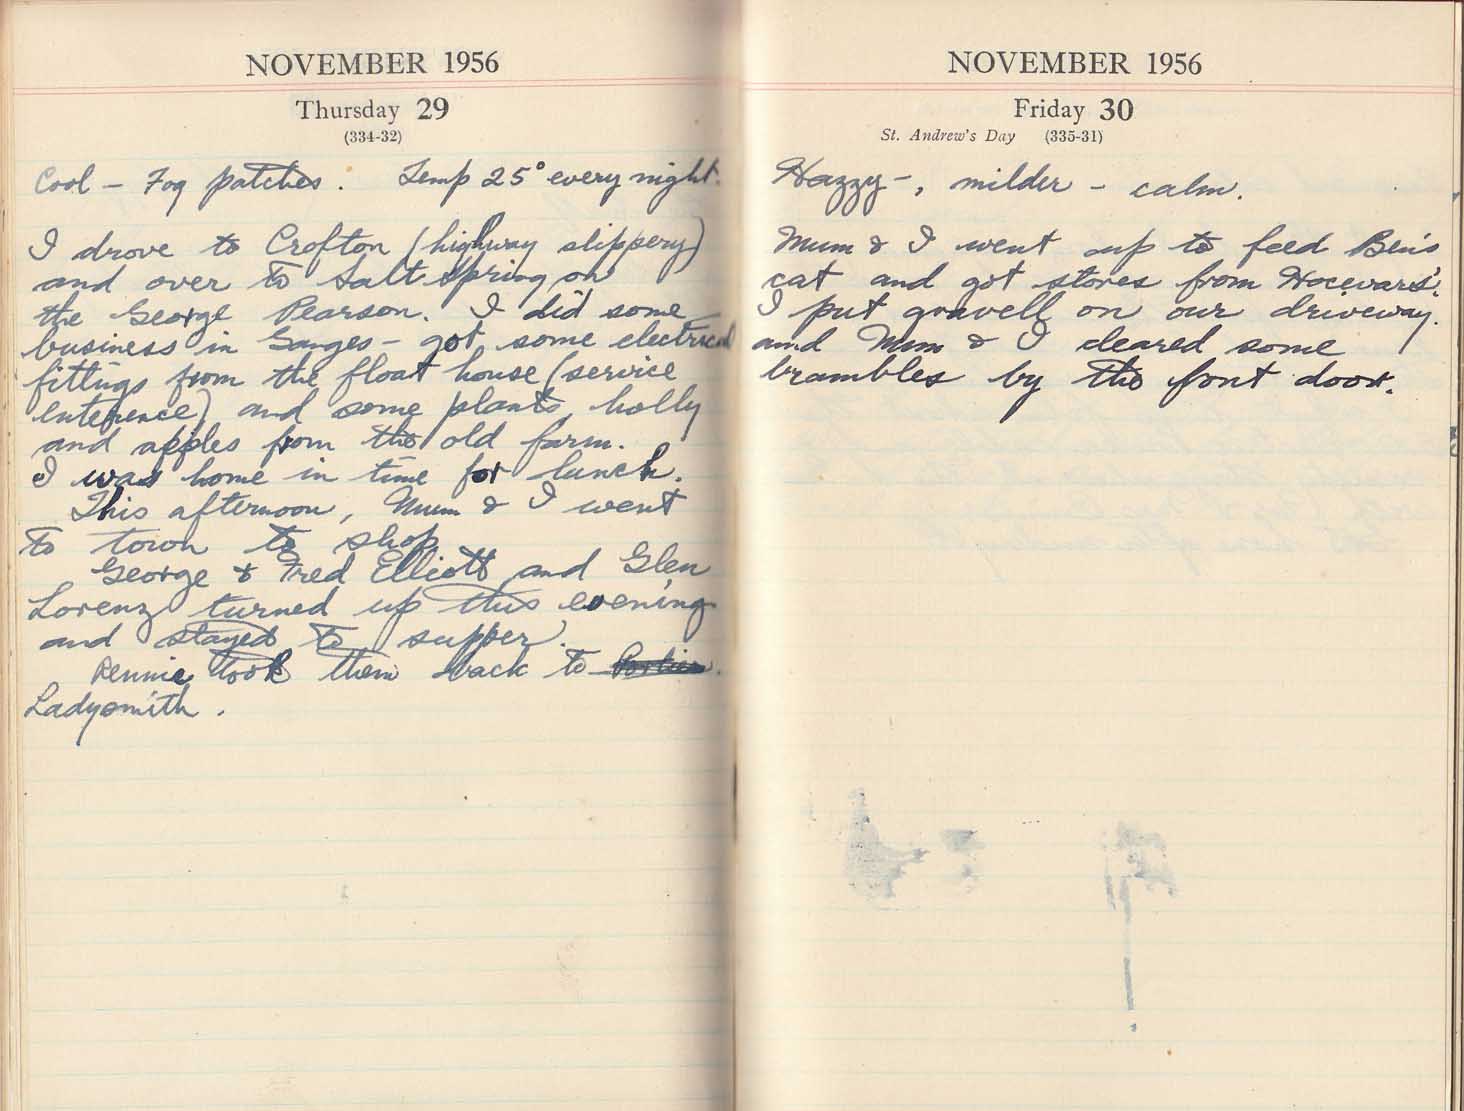 NOVEMBER 1956
Thursday 29
(334-32)
Cool - Fog patches. Temp 25° every night.
I drove to Crofton (highway slippery)
and over to Salt Spring on
the George Pearson. I did some
business in Ganges - got some electrical
fittings from the float house (service
enterence) and some plants, holly
and apples from the old farm.
I was home in time for lunch.
This afternoon, Mum & I went
to town to shop
George & Fred Elliott and Glen
Lorenz turned up this evening
and stayed to supper.
Rennie took them back to
Ladysmith.
NOVEMBER 1956
Friday 30
St. Andrew's Day (335-31)
Hazzy -, milder - calm.
Mum & I went up to feed Ben's
cat and got stores from Hocevars'.
I put gravell on our driveway.
and Mum & I cleared some
brambles by the font door.